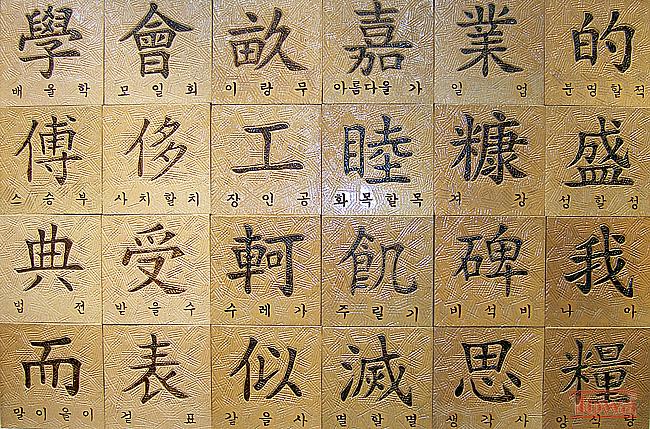 學 會 畝 嘉 業 的
배울학 모일회 이랑무 아름다울가 일업 분명할적
傅 侈 工 睦 糠 盛
스승부 사치할치 장인공 화목할목 겨강 성할성
典 受 軻 飢 碑 我
법전 받을수 수레가 주릴기 비석비 나아
而 表 似 滅 思 糧
말이을이 겉표 같을사 멸할멸 생각사 양식량